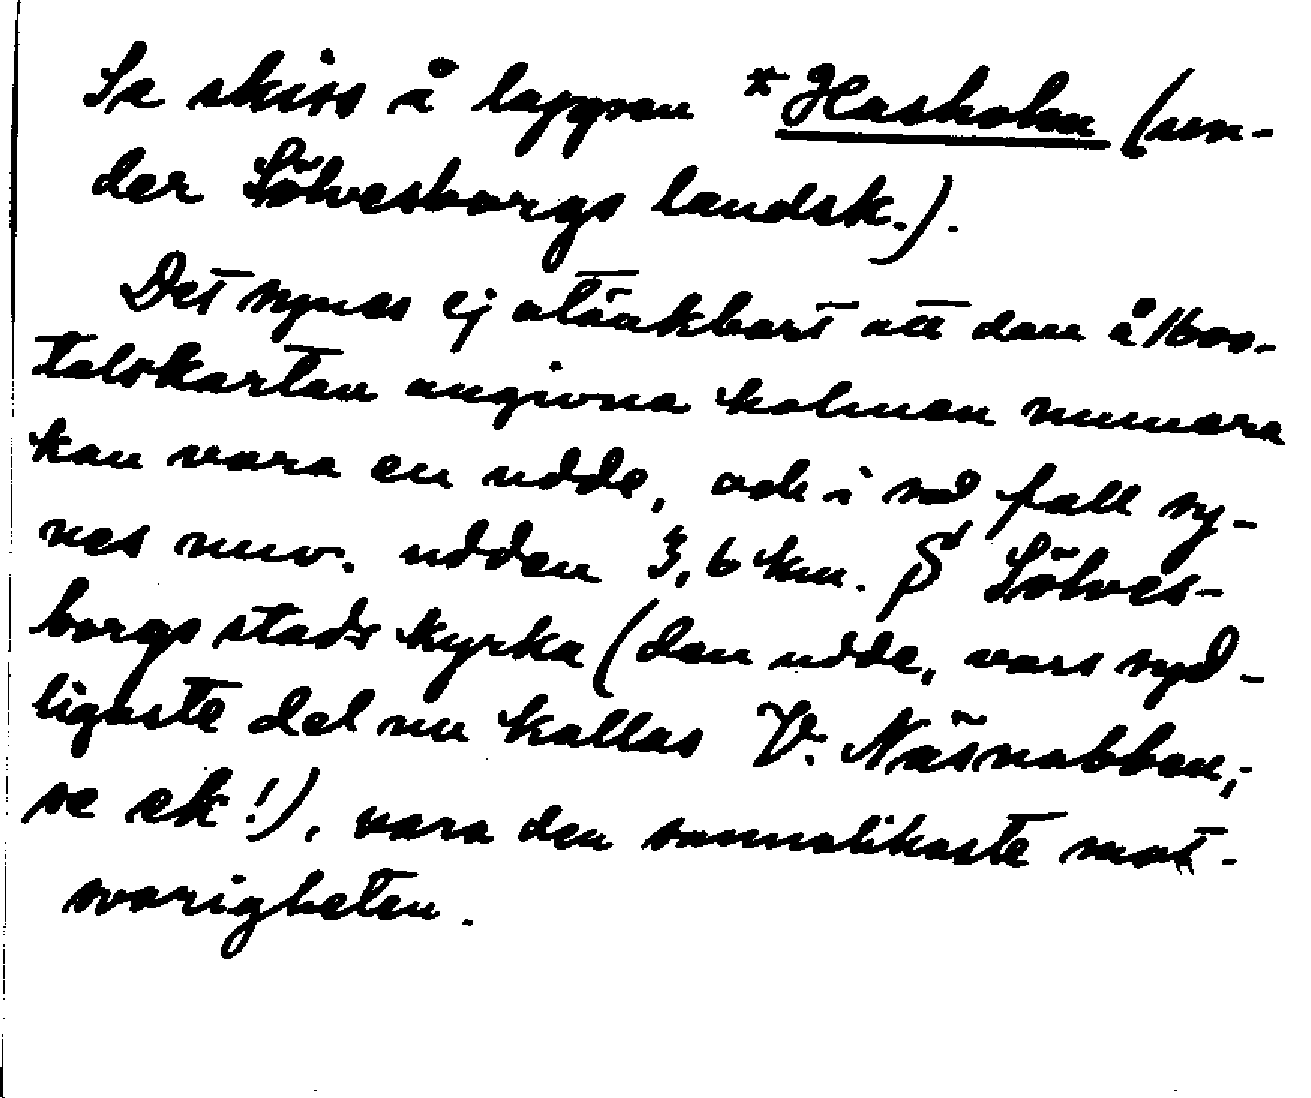 Se skiss å lappen *Hasholm (un-
der Sölvesborgs landsk.).
Det synes ej otänkbart att den å 1600-
talskartan angivna holmen numera
kan vara en udde, och i så fall sy-
nes nuv. udden 3,6 km. S Sölves-
borgs stads kyrka (den udde, vars syd-
ligaste del nu kallas V. Näsnabben,
se ek!), vara den sannolikaste mot-
svarigheten.